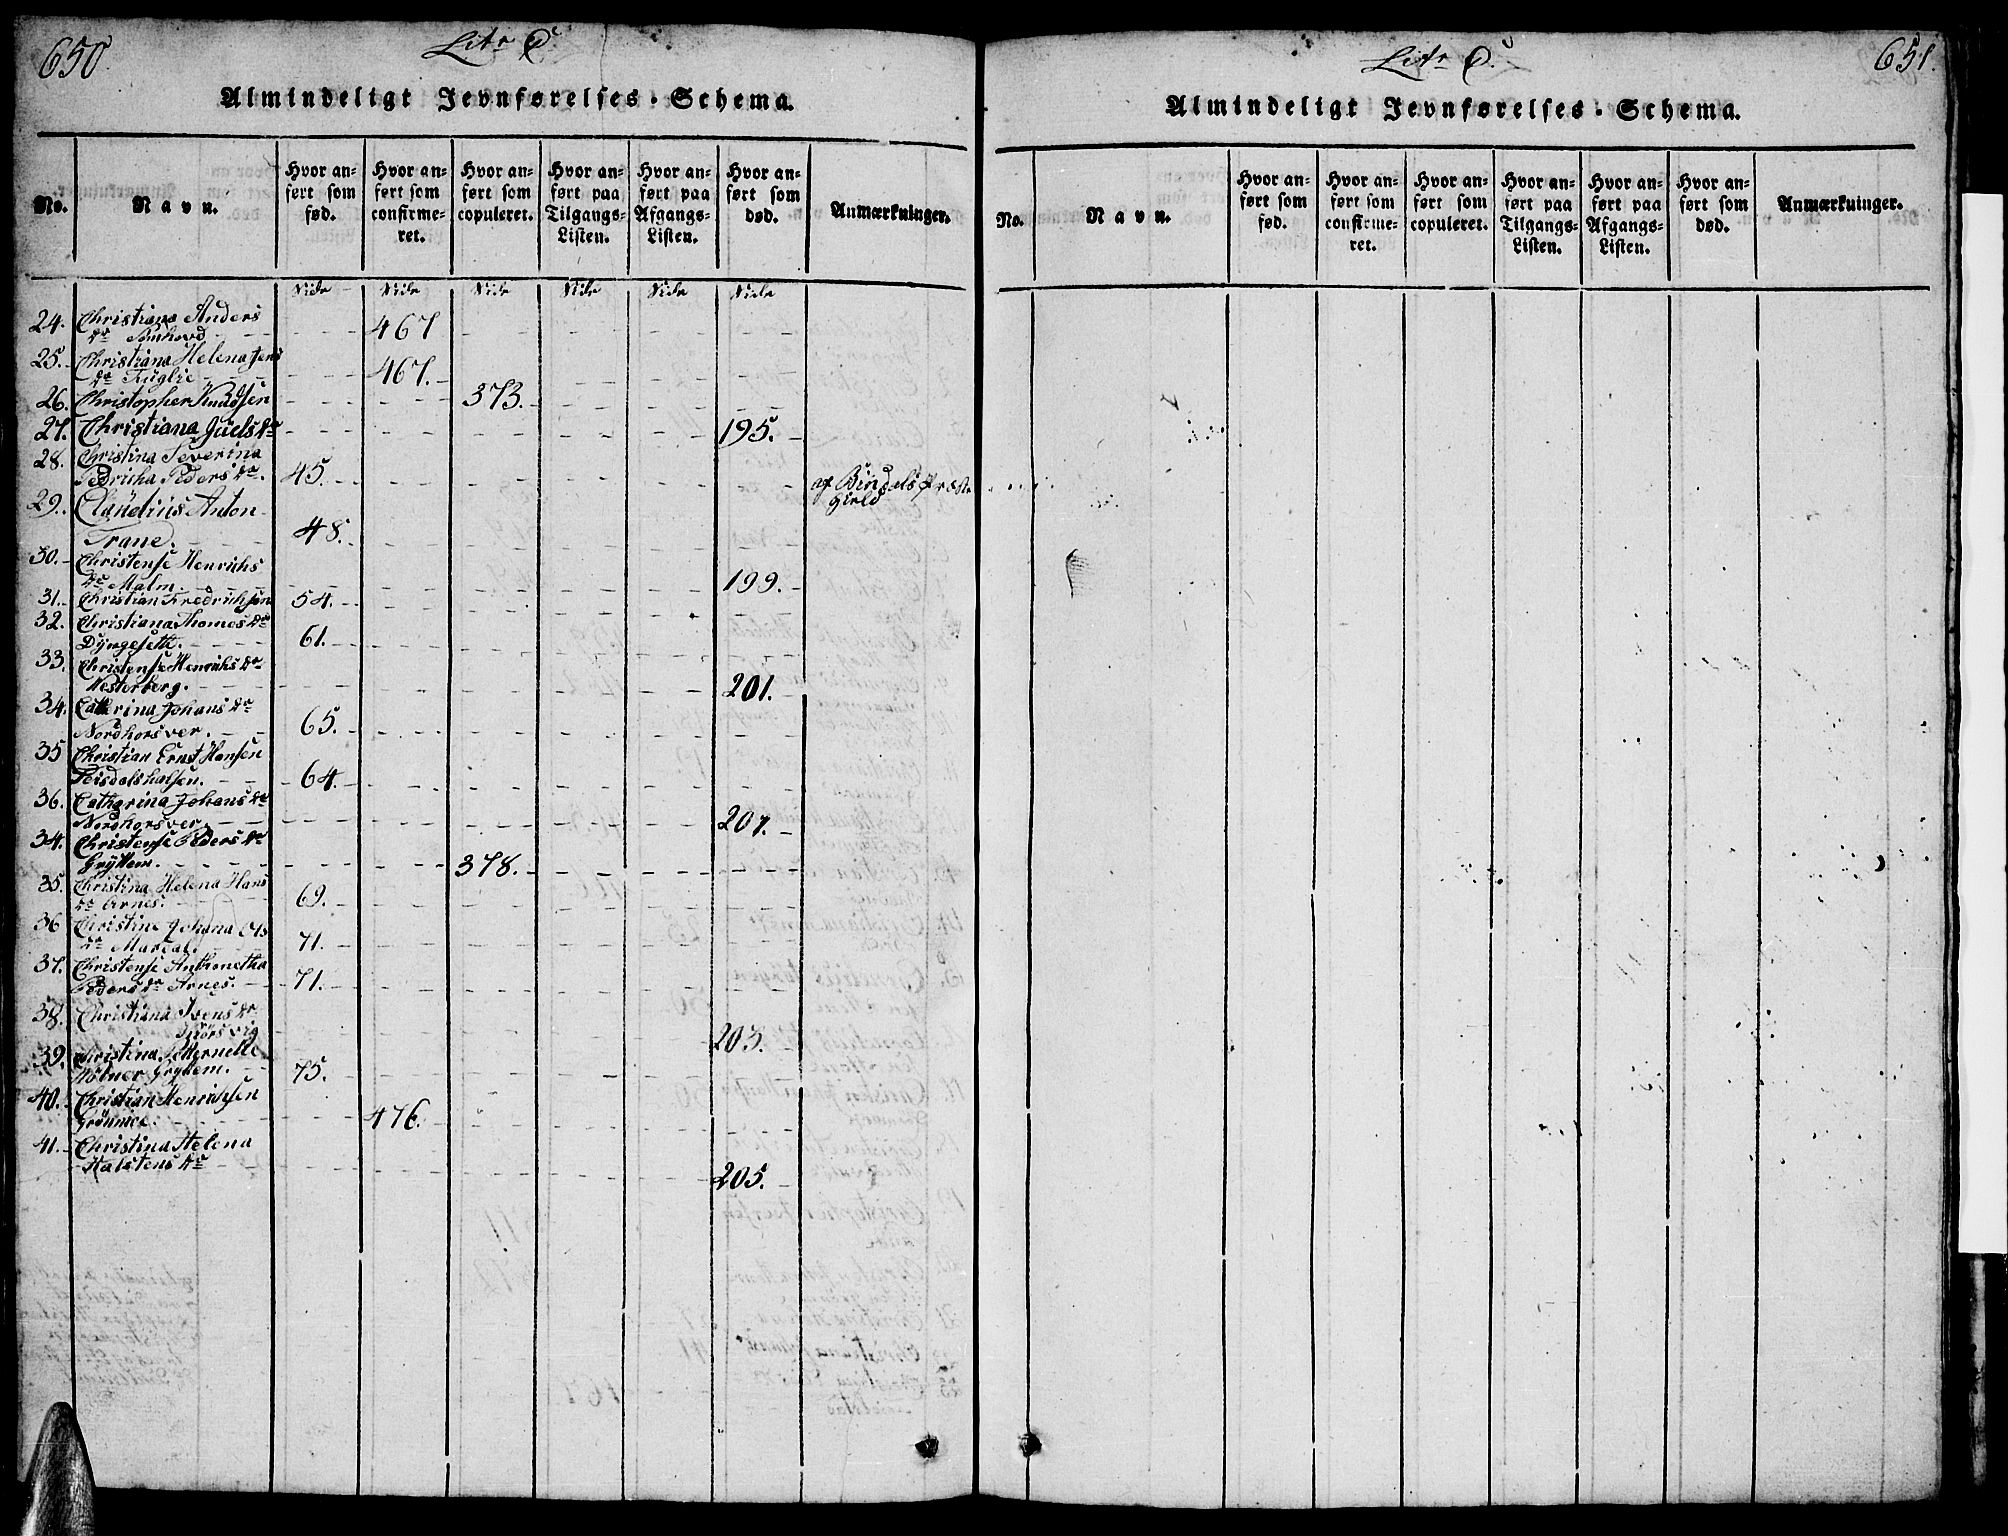 650.
Litr C.
Almindeligt Jevnførelses-Schema.
No.
Navn.
Hvor anført som fød.
Hvor anført som confirmeret.
Hvor anført som copuleret.
Hvor anført paa Tilgangs-Listen.
Hvor anført paa Afgangs-Listen.
Hvor anført som død.
Anmærkninger.
Vide Vide Vide Vide Vide Vide
24. Christiana Anders
dr 467
25. Christiana Helena Jens
dr Fuglie 467.
26. Christopher Knudsen 373.
27. Christiana Juels dr 195.
28. Christina Severina
Pedricha Peders dr. 45. af Bindals Præste
Gield
29. Claudius Anton
Trane. 48.
30. Christense Henrichs
dr Malm. 199.
31. Christian Fredrichsen 54.
32. Christiana Thomes dr
Dyngesetli. 61.
33. Christense Henrichs dr
Westerberg. 201.
34. Catherina Johans dr
Nordhorsver. 65.
35 Christian Ernst Hansen
Teisdalshalsen. 64.
36. Catharina Johans dr
Nordhorsver. 207.
34. Christense Peders dr
Gryttem. 378.
35. Christina Helena Hans
dr Arnes. 69.
36 Christine Johana Ols
dr 71.
37. Christense Anthonetha
Peders dr Arnes. 71.
38. Christiana Svens dr
203.
39. Christina Petternelle
Gryttem. 75.
40. Christian Henrichsen
476.
41. Christina Helena
Halstens dr 205.
651.
Litr C.
Almindeligt Jevnførelses-Schema.
No.
Navn.
Hvor anført som fød.
Hvor anført som confirmeret.
Hvor anført som copuleret.
Hvor anført paa Tilgangs-Listen.
Hvor anført paa Afgangs-Listen.
Hvor anført som død.
Anmærkninger.